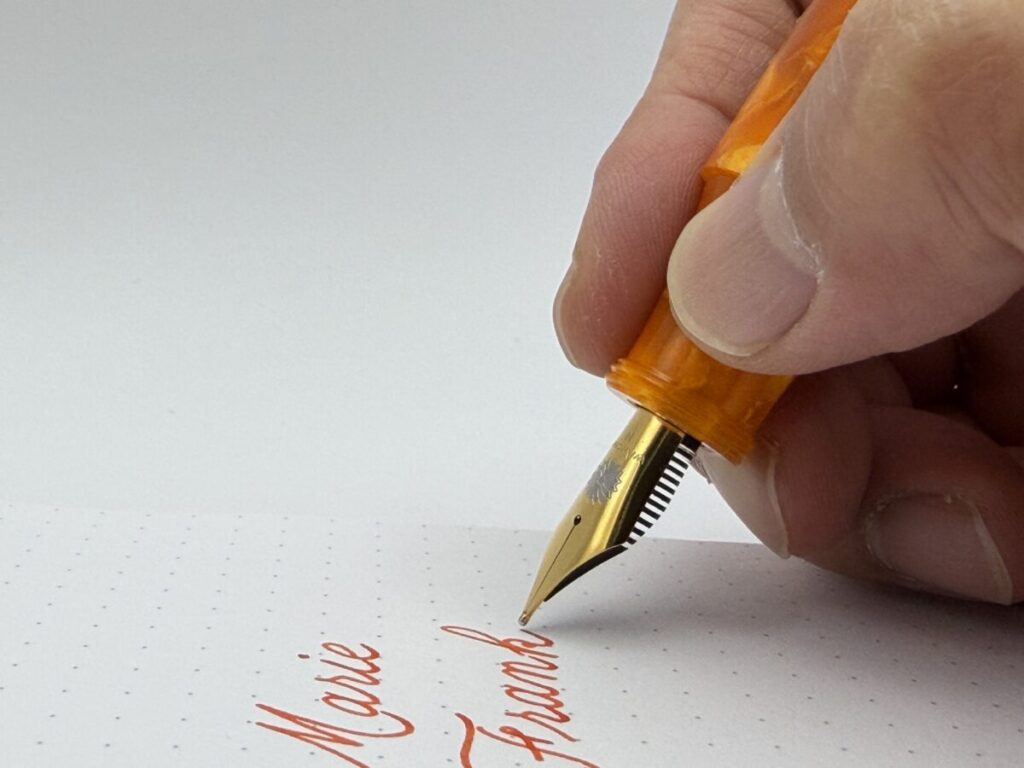 Marie
Frank